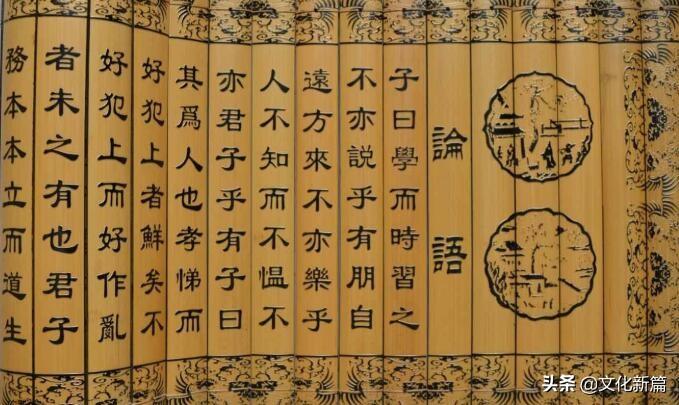 論語
子曰學而時習之
不亦説乎有朋自
遠方來不亦樂乎
人不知而不愠不
亦君子乎有子曰
其爲人也孝悌而
好犯上者鮮矣不
好犯上而好作亂
者未之有也君子
務本本立而道生
头条 @文化新篇